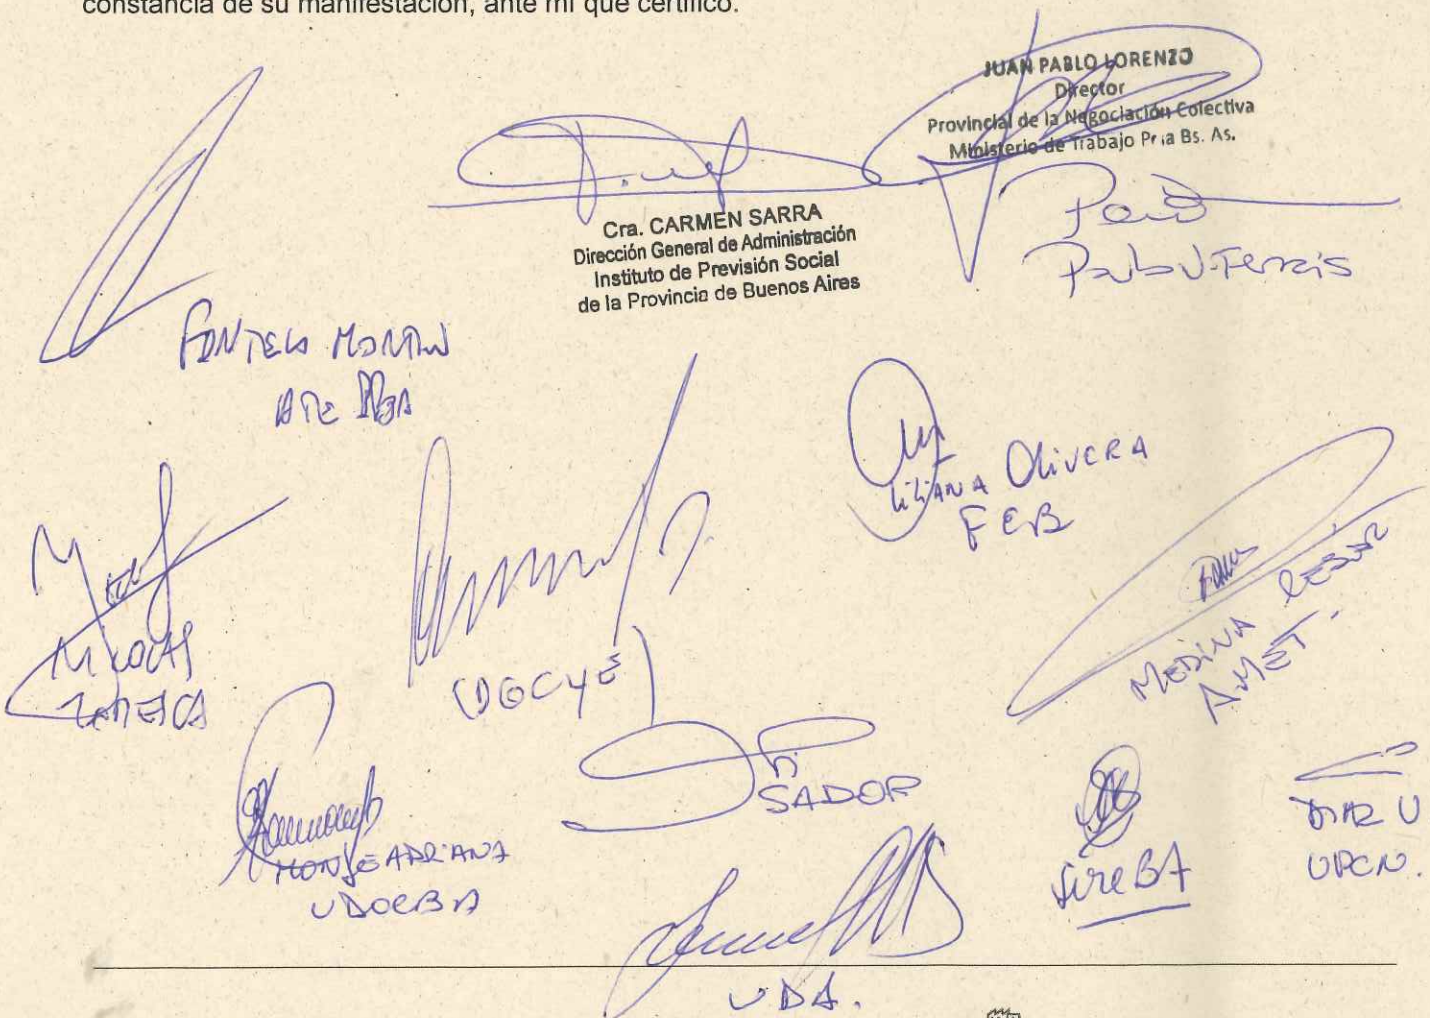 constancia de su manifestación, ante mí que certifico.
JUAN PABLO LORENZO
Director
Provincial de la Negociación Colectiva
Ministerio de Trabajo Pcia Bs. As.
Cra. CARMEN SARRA
Dirección General de Administración
Instituto de Previsión Social
de la Provincia de Buenos Aires
Pablo J. Ferraris
ATE
LiLiANA OLiVERA
FEB
NICOLAS
(DGCYE)
MEDINA CESAR
AMET.
SADOP
MONJE ADRIANA
UDOCBA
SiReBA
DIAZ U
UPCN.
UDA.